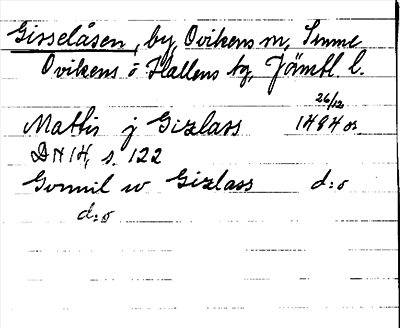 Gisselåsen, by, Ovikens sn, Sunne
Ovikens o Hallens tg, Jämtl l.
26/12
Mattis j Gizlass 1484 or
DN 14, s. 122
Gunnil w Gizlass d:o
d:o